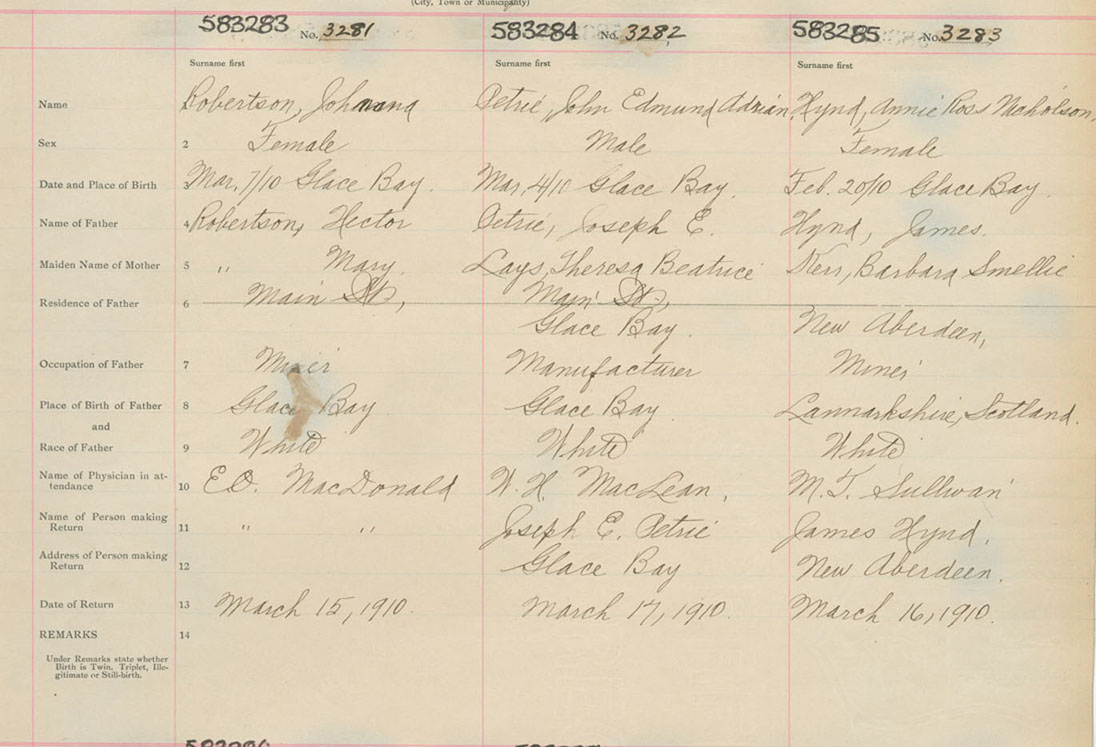 (City, Town or Municipality)
583283 No. 3281 583284 No. 3282 583285 No. 3283
Surname first Surname first Surname first
Name 1 Robertson, Johnena Petrie, John Edmund Adrian Hynd, Annie Ross Nicholson.
Sex 2 Female Male Female
Date and Place of Birth 3 Mar. 7/10 Glace Bay. Mar. 4/10 Glace Bay. Feb. 20/10 Glace Bay.
Name of Father 4 Robertson, Hector Petrie, Joseph E. Hynd, James.
Maiden Name of Mother 5 " Mary. Lays, Theresa Beatrice Kerr, Barbara Smellie
Residence of Father 6 Main St, Main St,
Glace Bay. New Aberdeen,
Occupation of Father 7 Miner Manufacturer Miner
Place of Birth of Father 8 Glace Bay Glace Bay Lannarkshire, Scotland.
and
Race of Father 9 White White White
Name of Physician in at-
tendance 10 E.O. MacDonald W. H. MacLean, M. T. Sullivan
Name of Person making
Return 11 " " Joseph E. Petrie James Hynd,
Address of Person making
Return 12 Glace Bay New Aberdeen.
Date of Return 13 March 15, 1910. March 17, 1910. March 16, 1910.
REMARKS 14
Under Remarks state whether
Birth is Twin, Triplet, Ille-
gitimate or Still-birth.